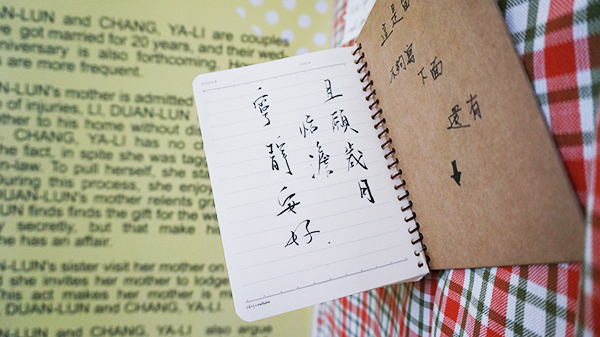 LUN and CHANG, YA-LI are couples
got married for 20 years, and their
is also forthcoming.
are more frequent.
LUN's mother is admitted
of injuries, LI, DUAN-LUN
to his home without
CHANG, YA-LI has no
the fact, in site she was
To pull herself, she
During this process, she enjoy
LUN's mother relents
finds finds the gift for the
secretly, but that make
has an affair.
LUN's sister visit her mother on
she invites her mother to
This act makes her mother is
DUAN-LUN and CHANG, YA-LI
LUN and CHANG, YA-LI also argue
且願歲月
恬澹
寧靜安好.
不夠寫
下面
還有